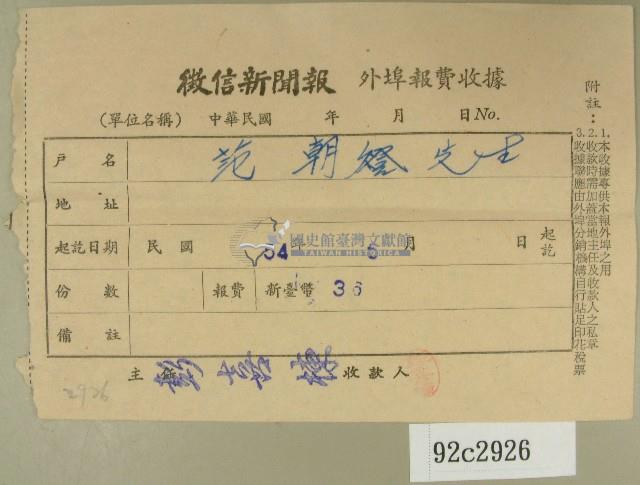 徵信新聞報 外埠報費收據
(單位名稱) 中華民國 年 月 日 No.
戶名 范朝燈先生
地址
起訖日期 民國 54年 6月 日 起訖
份數 報費 新臺幣 36
備註
主任 彭 收款人
附註：
1.本收據專供本報外埠之用
2.收款時需加蓋當地主任及收款人之私章
3.收據聯應由外埠分銷機構自行貼足印花稅票
國史館臺灣文獻館
TAIWAN HISTORICA
2926
92c2926